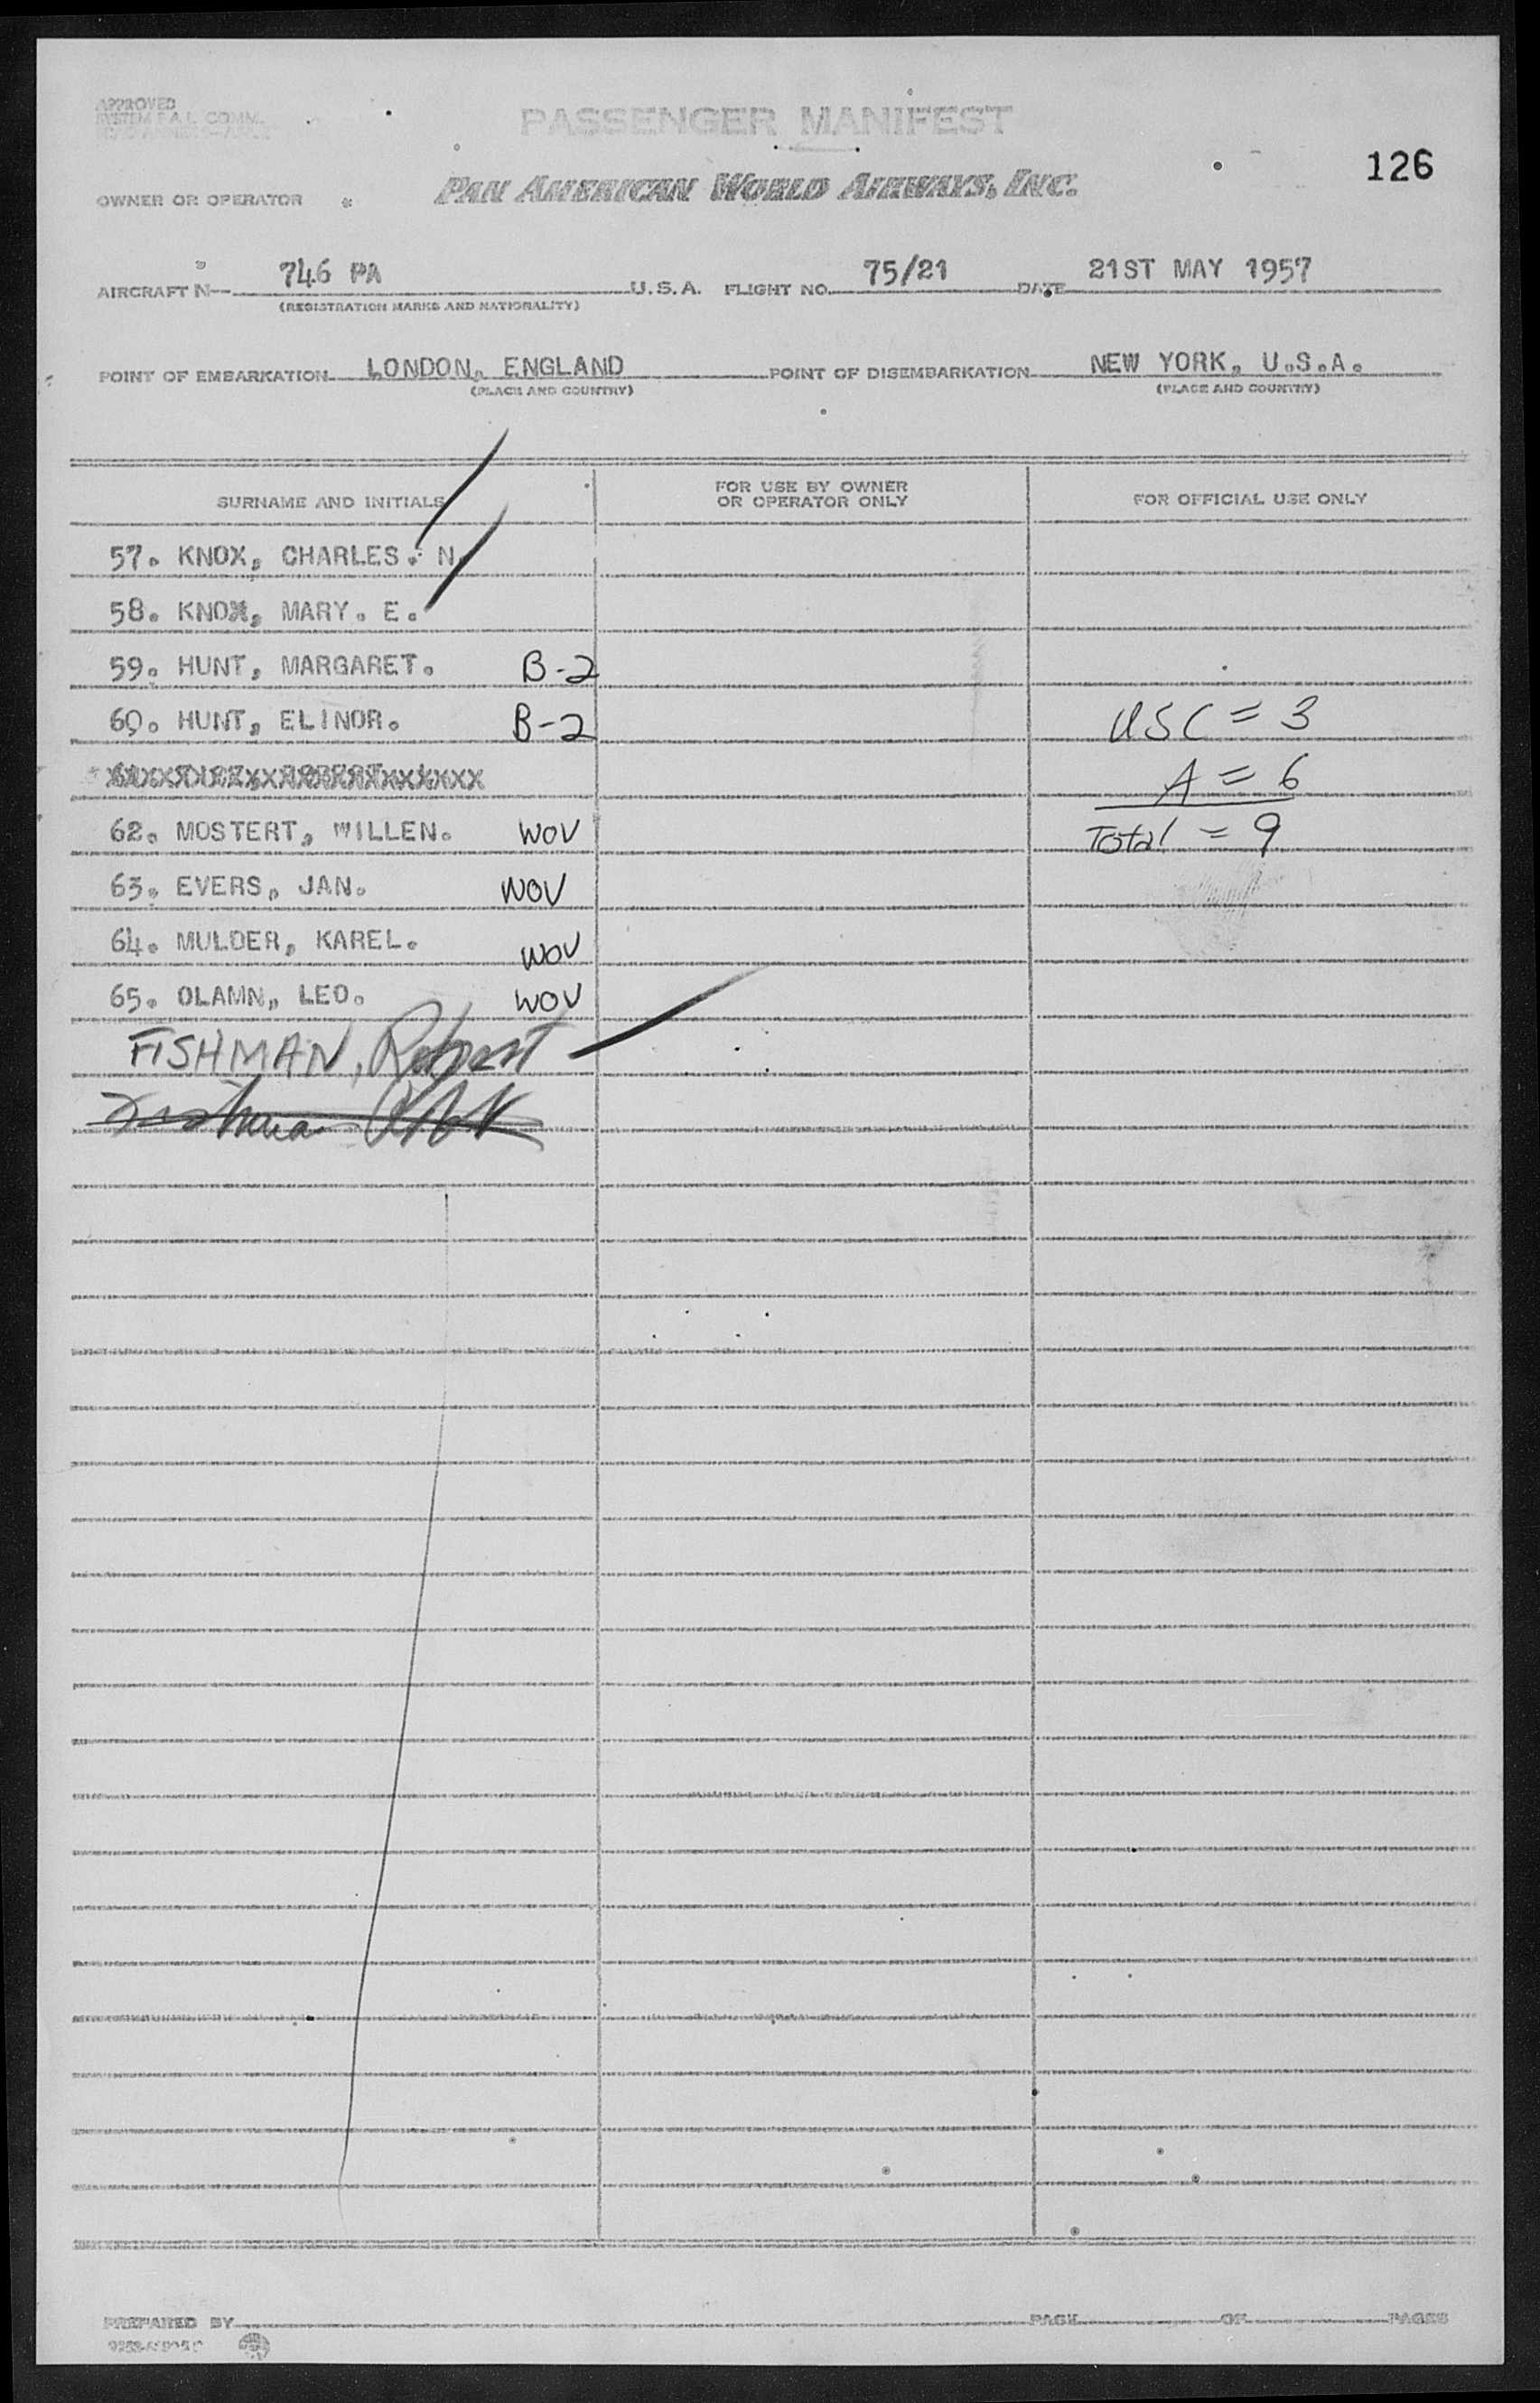 APPROVED
SYSTEM F.A.L. COMM.
PASSENGER MANIFEST
126
OWNER OR OPERATOR PAN AMERICAN WORLD AIRWAYS, INC.
AIRCRAFT N 746 PA U.S.A. FLIGHT NO. 75/21 DATE 21ST MAY 1957
(REGISTRATION MARKS AND NATIONALITY)
POINT OF EMBARKATION LONDON, ENGLAND POINT OF DISEMBARKATION NEW YORK, U.S.A.
(PLACE AND COUNTRY) (PLACE AND COUNTRY)
SURNAME AND INITIALS FOR USE BY OWNER OR OPERATOR ONLY FOR OFFICIAL USE ONLY
57. KNOX, CHARLES. N.
58. KNOX, MARY. E.
59. HUNT, MARGARET. B-2
60. HUNT, ELINOR. B-2 USC = 3
A = 6
62. MOSTERT, WILLEN. WOV Total = 9
63. EVERS, JAN. WOV
64. MULDER, KAREL. WOV
65. OLAMN, LEO. WOV
FISHMAN, Robert
PREPARED BY PAGE OF PAGES